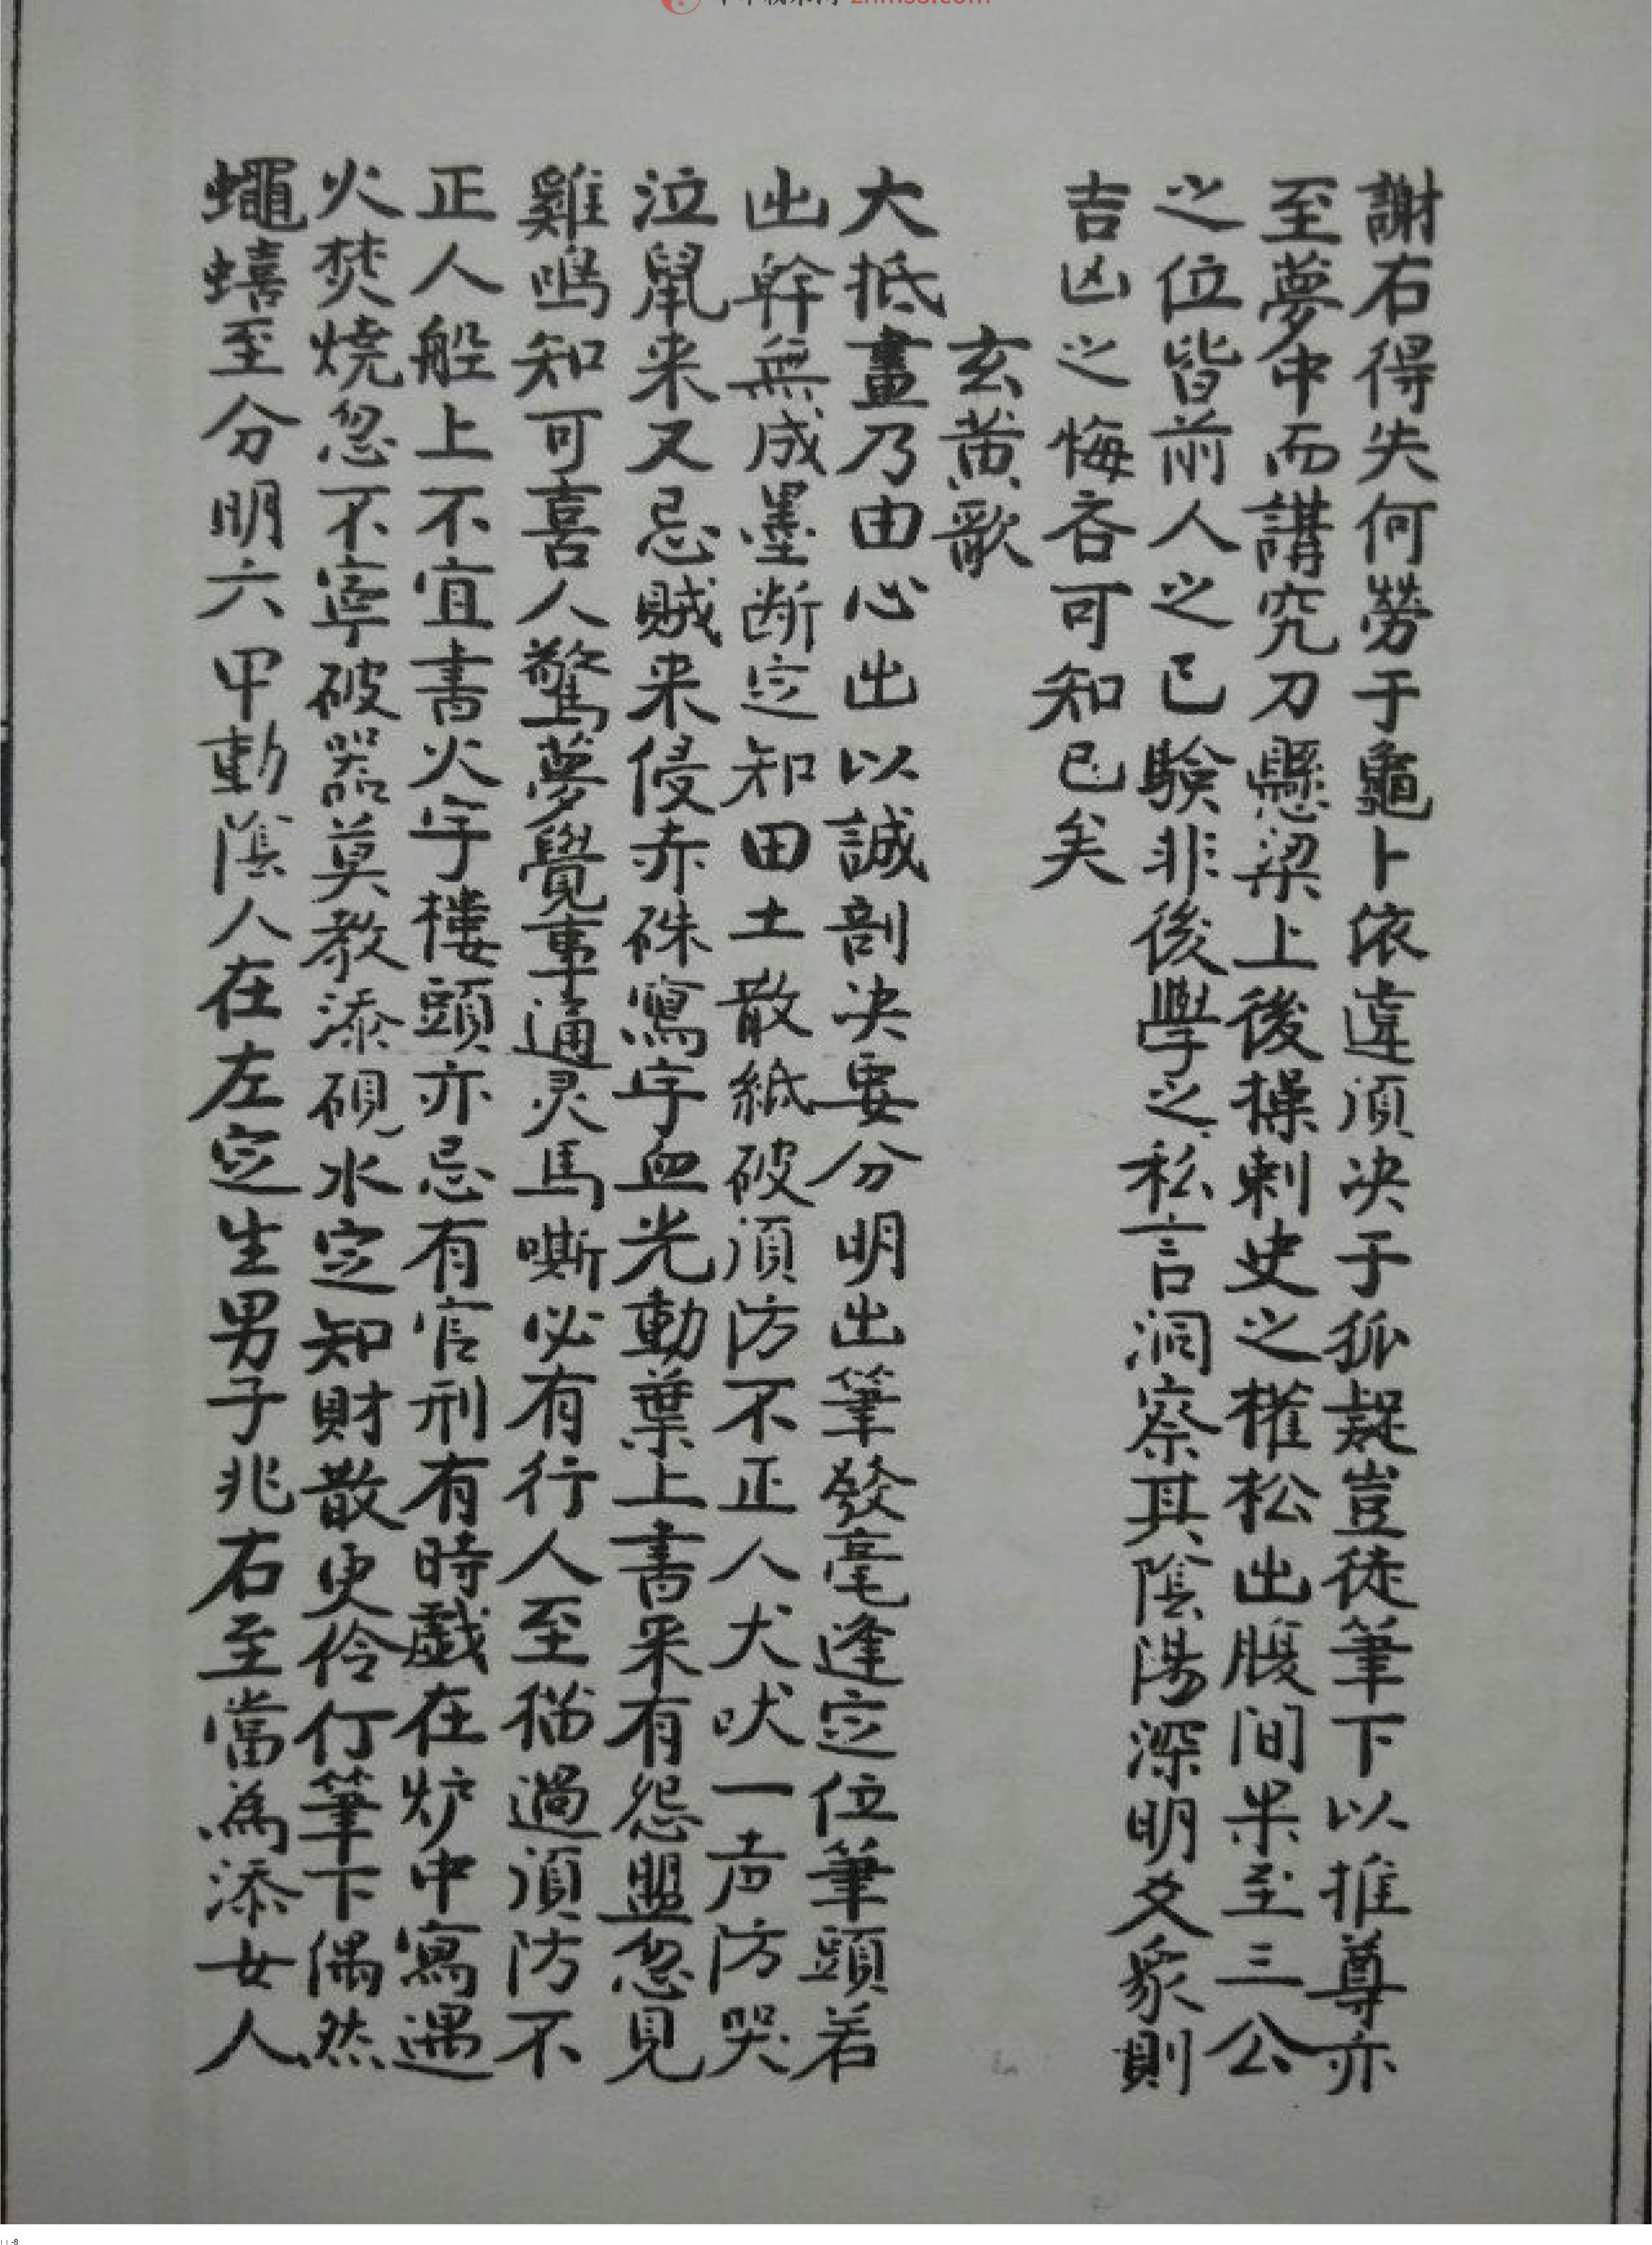 謝石得失何勞于龜卜依違須决于狐疑豈徒筆下以推尊亦
至夢中而講究刀懸梁上後操刺史之權松出腹间果至三公
之位皆前人之已験非後學之私言洞察其陰陽深明爻象則
吉凶之悔吝可知已矣
玄黄歌
大抵畫乃由心出以誠剖决要分明出筆發毫逢定位筆頭若
出幹無成墨断定知田土散紙破須防不正人犬吠一声防哭
泣鼠来又忌賊来侵赤硃寫字血光動葉上書来有怨盟忽見
雞鳴知可喜人驚夢覺事通灵馬嘶必有行人至猫過須防不
正人船上不宜書火字樓頭亦忌有官刑有時戲在炉中寫遇
火焚燒忽不寧破器莫教添硯水定知財散更伶仃筆下偶然
蠅蟢至分明六甲動陰人在左定生男子兆右至當為添女人
znms8.com